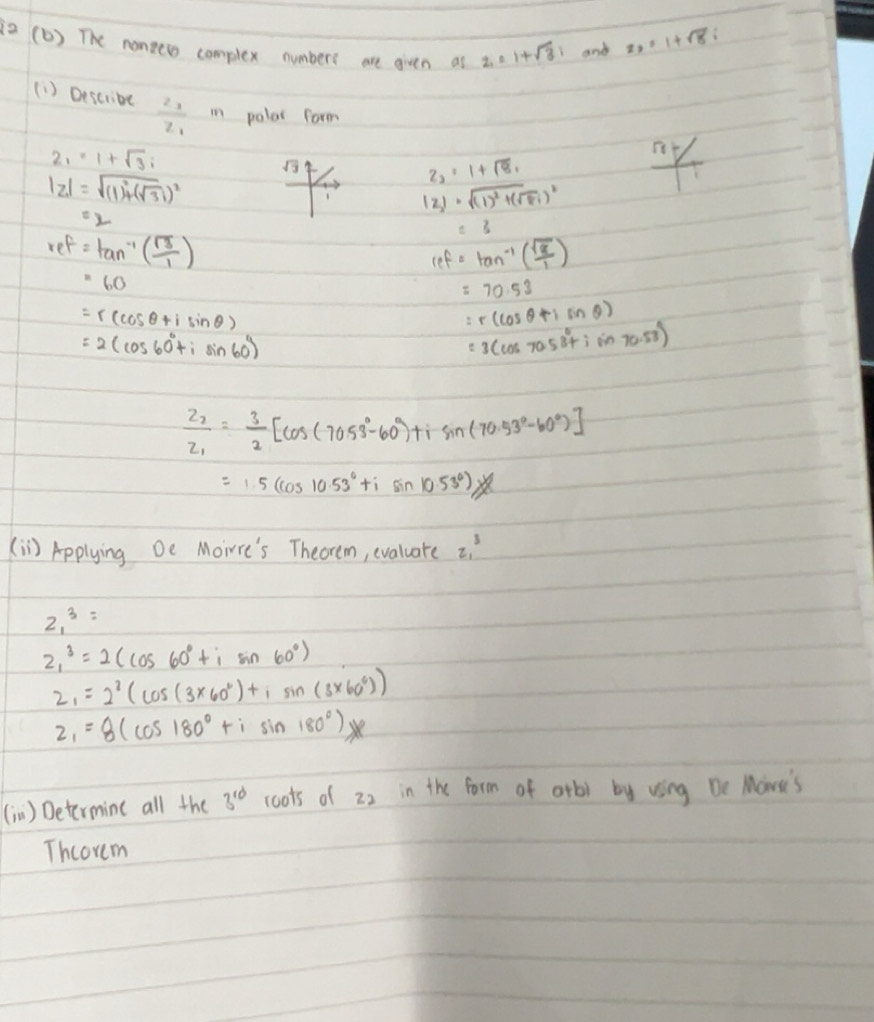 (b) The nonzero complex numbers are given as z₁ = 1+√3 i and z₂ = 1+√8 i
(i) Describe z₂/z₁ in polar form
z₁ = 1+√3 i
√3
1
|z₁| = √((1)²+(√3i)²)
= 2
ref = tan⁻¹(√3/1)
= 60
= r(cosθ + i sinθ)
= 2(cos 60° + i sin 60°)
z₂ = 1+√8 i
√8
1
|z₂| = √((1)²+(√8i)²)
= 3
ref = tan⁻¹(√8/1)
= 70.53
= r(cosθ + i sin θ)
= 3(cos 70.53° + i sin 70.53°)
z₂/z₁ = 3/2 [cos(70.53°-60°)+i sin(70.53°-60°)]
= 1.5 (cos 10.53° + i sin 10.53°)
(ii) Applying De Moivre's Theorem, evaluate z₁³
z₁³ =
z₁³ = 2(cos 60° + i sin 60°)
z₁ = 2³(cos(3×60°) + i sin(3×60°))
z₁ = 8(cos 180° + i sin 180°)
(iii) Determine all the 3rd roots of z₂ in the form of a+bi by using De Moivre's
Theorem